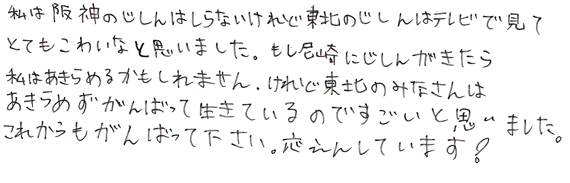 私は阪神のじしんはしらないけれど東北のじしんはテレビで見て
とてもこわいなと思いました。もし尼崎にじしんがきたら
私はあきらめるかもしれません。けれど東北のみなさんは
あきらめずがんばって生きているのですごいと思いました。
これからもがんばって下さい。応えんしています!